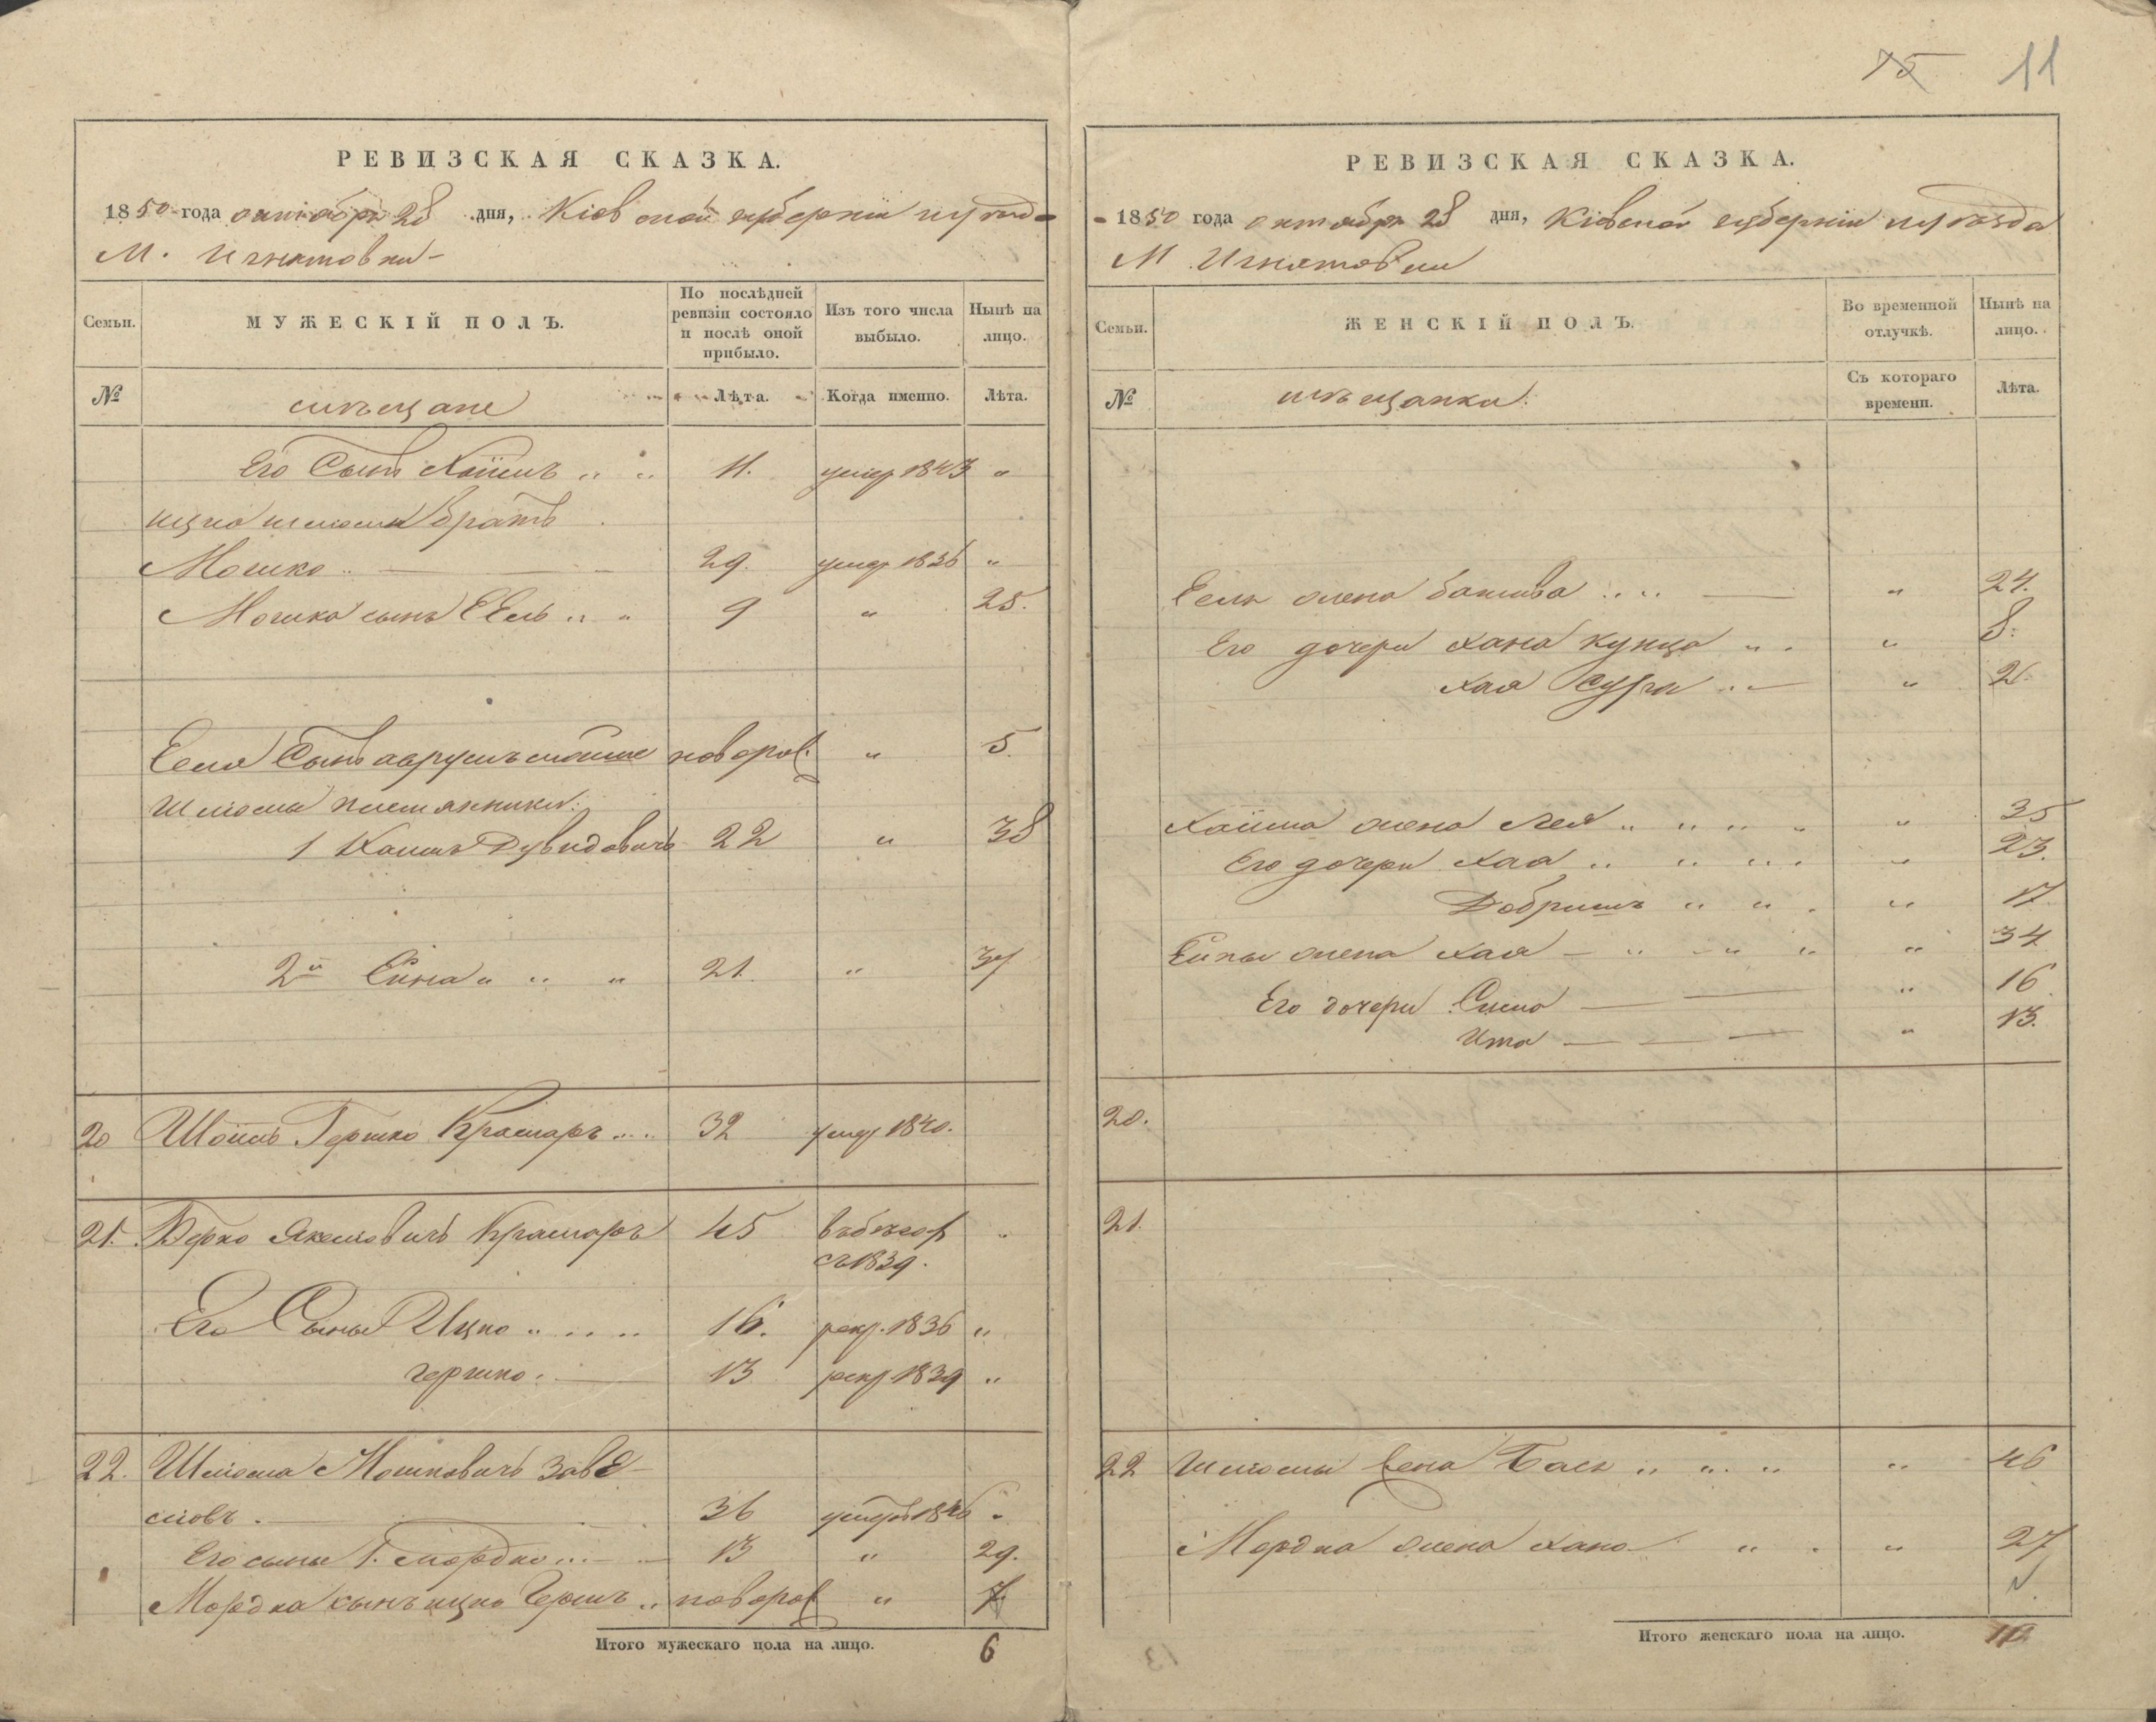 75 11
РЕВИЗСКАЯ СКАЗКА.
1850 года октября 28 дня, Кіевской губерніи
М. Игнатовки
Семьи.
МУЖЕСКІЙ ПОЛЪ.
По послѣдней ревизіи состояло и послѣ оной прибыло.
Изъ того числа выбыло.
Нынѣ на лицо.
№
мѣщане
Лѣта.
Когда именно.
Лѣта.
Его Сынъ Хаимъ 11. умер 1843 "
Ицка Шлиомы братъ
Мошко 29. умер 1836 "
Мошка сынъ Еель 9 " 25.
Ееля Сынъ аврумъ новорож. " 5.
Шлиомы племянники:
1 Хаимъ Дувидовичъ 22 " 38
2й Ейна " " " 21. " 37
20 Гершко Крамаръ 32 умер 1840.
21. Берко Крамаръ 45 въ бѣгах "
съ 1839.
Его Сыны Ицко 16. рекр. 1836 "
гершко 13 рекр 1839 "
22. Шлиома Мошковичъ Заве-
словъ. 36 умер 1846 "
Его сынъ 1. мордко 13 " 29.
Мордка сынъ ицко Гершъ новорож " 7
Итого мужескаго пола на лицо. 6
РЕВИЗСКАЯ СКАЗКА.
1850 года октября 28 дня, Кіевской губерніи уѣзда
М. Игнатовки
Семьи.
ЖЕНСКІЙ ПОЛЪ.
Во временной отлучкѣ.
Нынѣ на лицо.
№
мѣщанки.
Съ котораго времени.
Лѣта.
Ееля жена башива " 24.
Его дочери хана купца " 8.
хая Сура " 2
Хаима жена Лея " 35
Его дочери хая " 23.
Добришъ " 17.
Ейны жена хая " 34
Его дочери Сима " 16
Ита " 13.
20.
21.
22 Шлиомы жена Бася " 46
Мордка жена хана " 27
Итого женскаго пола на лицо.